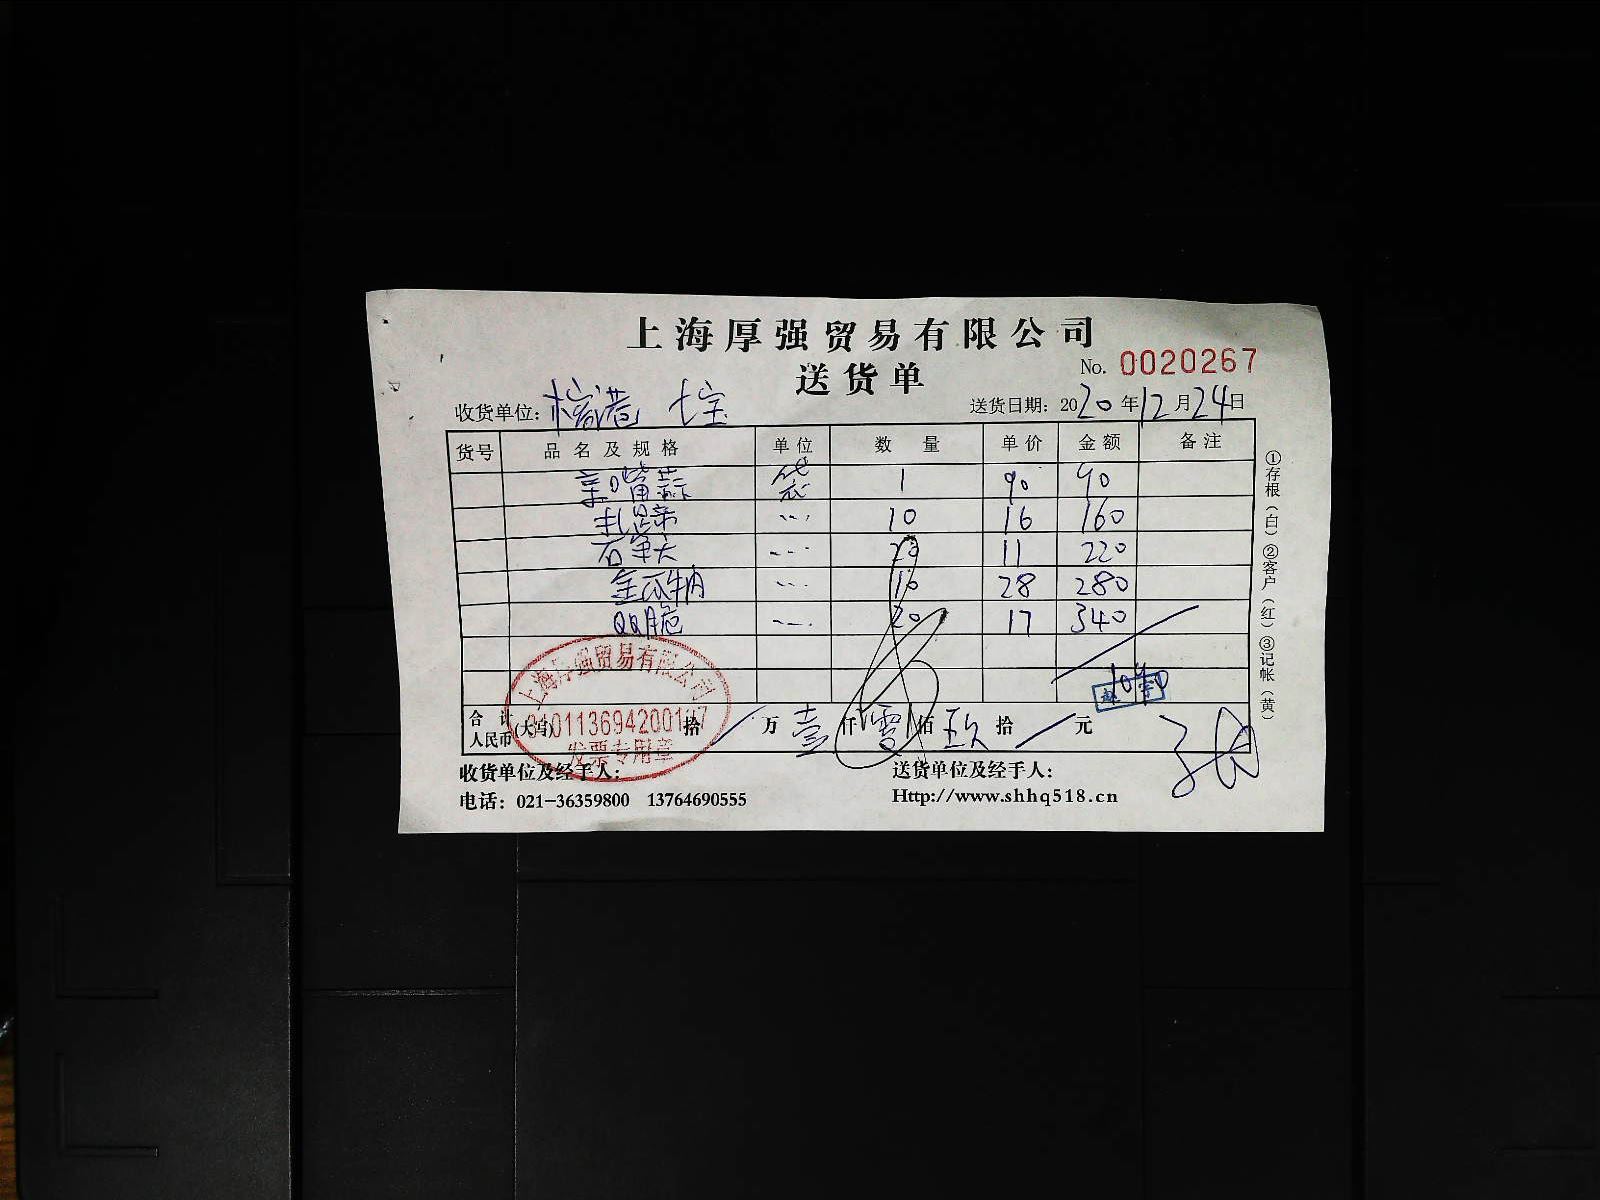 上海厚强贸易有限公司
送货单
No. 0020267
收货单位: 七宝
送货日期: 2020年12月24日
货号 品名及规格 单位 数量 单价 金额 备注
袋 1 90 90
10 16 160
20 11 220
金瓜 10 28 280
QQ脆 20 17 340
1090
合计人民币(大写) 拾 / 万 壹 仟 零 佰 玖 拾 / 元
上海厚强贸易有限公司
发票专用章
收货单位及经手人:
送货单位及经手人:
电话: 021-36359800 13764690555
Http://www.shhq518.cn
①存根(白)②客户(红)③记帐(黄)